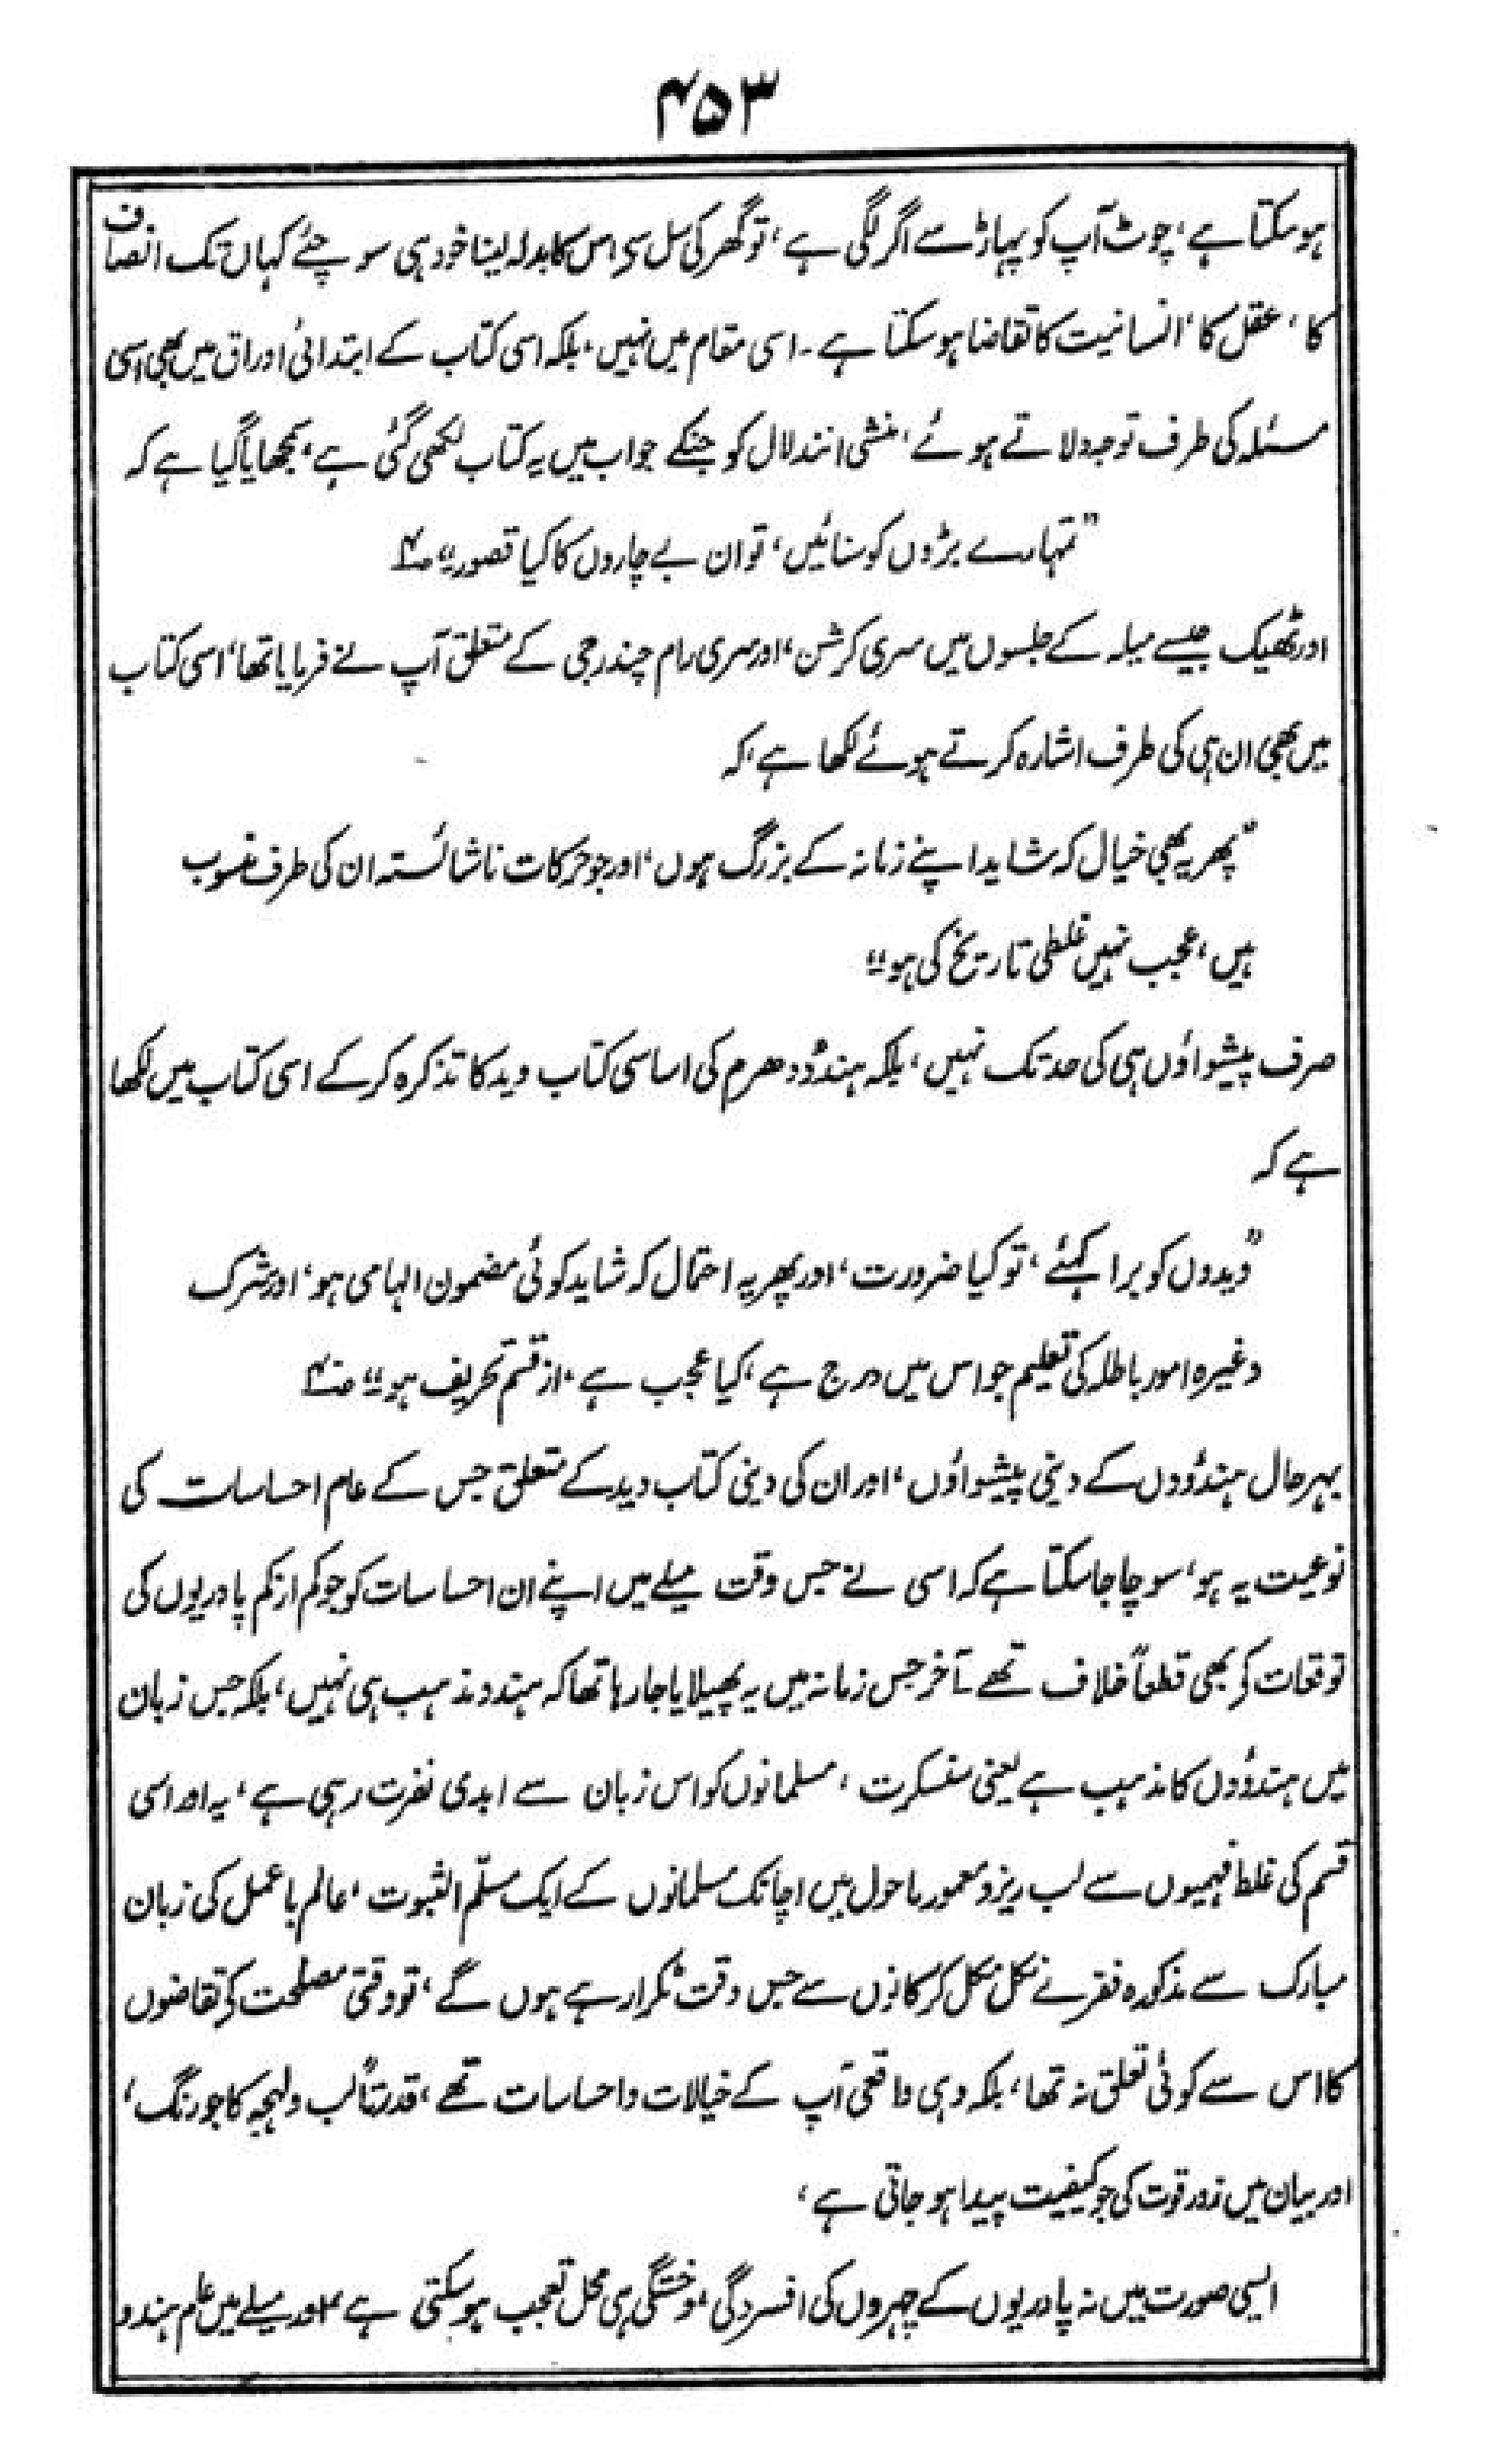 ۴۵۳
ہوسکتا ہے، چوٹ آپ کو پہاڑ سے اگر لگی ہے، تو گھر کی سل سے اس کا بدلہ لینا خود ہی سوچئے کہاں تک انصاف
کا، عقل کا، انسانیت کا تقاضا ہوسکتا ہے۔ اسی مقام میں نہیں، بلکہ اسی کتاب کے ابتدائی اوراق میں بھی اسی
مسئلہ کی طرف توجہ دلاتے ہوئے، منشی انندلال کو جنکے جواب میں یہ کتاب لکھی گئی ہے، سمجھایا گیا ہے کہ
"تمہارے بڑوں کو سنائیں، تو ان بے چاروں کا کیا قصور" ص۴
اور ٹھیک جیسے میلہ کے جلسوں میں سری کرشن، اور سری رام چندرجی کے متعلق آپ نے فرمایا تھا، اسی کتاب
میں بھی ان ہی کی طرف اشارہ کرتے ہوئے لکھا ہے، کہ
"پھر یہ بھی خیال کہ شاید اپنے زمانہ کے بزرگ ہوں، اور جو حرکات ناشائستہ ان کی طرف منسوب
ہیں، عجب نہیں غلطی تاریخ کی ہو"
صرف پیشواؤں ہی کی حد تک نہیں، بلکہ ہندؤ دھرم کی اساسی کتاب وید کا تذکرہ کرکے اسی کتاب میں لکھا
ہے کہ
"ویدوں کو برا کہئے، تو کیا ضرورت، اور پھر یہ احتمال کہ شاید کوئی مضمون الہامی ہو، اور شرک
وغیرہ امور باطلہ کی تعلیم جو اس میں درج ہے، کیا عجب ہے، از قسم تحریف ہو" ص۴
بہرحال ہندؤوں کے دینی پیشواؤں، اور ان کی دینی کتاب وید کے متعلق جس کے عام احساسات کی
نوعیت یہ ہو، سوچا جاسکتا ہے کہ اسی نے جس وقت میلے میں اپنے ان احساسات کو جو کم از کم پادریوں کی
توقعات کے بھی قطعاً خلاف تھے۔ آخر جس زمانہ میں یہ پھیلایا جارہا تھا کہ ہندو مذہب ہی نہیں، بلکہ جس زبان
میں ہندؤوں کا مذہب ہے یعنی سنسکرت، مسلمانوں کو اس زبان سے ابدی نفرت رہی ہے، یہ اور اسی
قسم کی غلط فہمیوں سے لب ریز و معمور ماحول میں اچانک مسلمانوں کے ایک مسلّم الثبوت، عالم باعمل کی زبان
مبارک سے مذکورہ فقرے نکل نکل کر کانوں سے جس وقت ٹکرا رہے ہوں گے، تو وقتی مصلحت کے تقاضوں
کا اس سے کوئی تعلق نہ تھا، بلکہ وہی واقعی آپ کے خیالات واحساسات تھے، قدرتاً لب ولہجہ کا جو رنگ،
اور بیان میں زور قوت کی جو کیفیت پیدا ہوجاتی ہے،
ایسی صورت میں نہ پادریوں کے چہروں کی افسردگی، وخستگی ہی محل تعجب ہوسکتی ہے، اور میلے میں عام ہندو